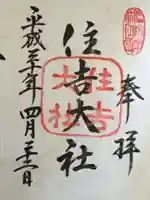 奉拝
住吉大社
住吉大社
平成三十年四月二十二日